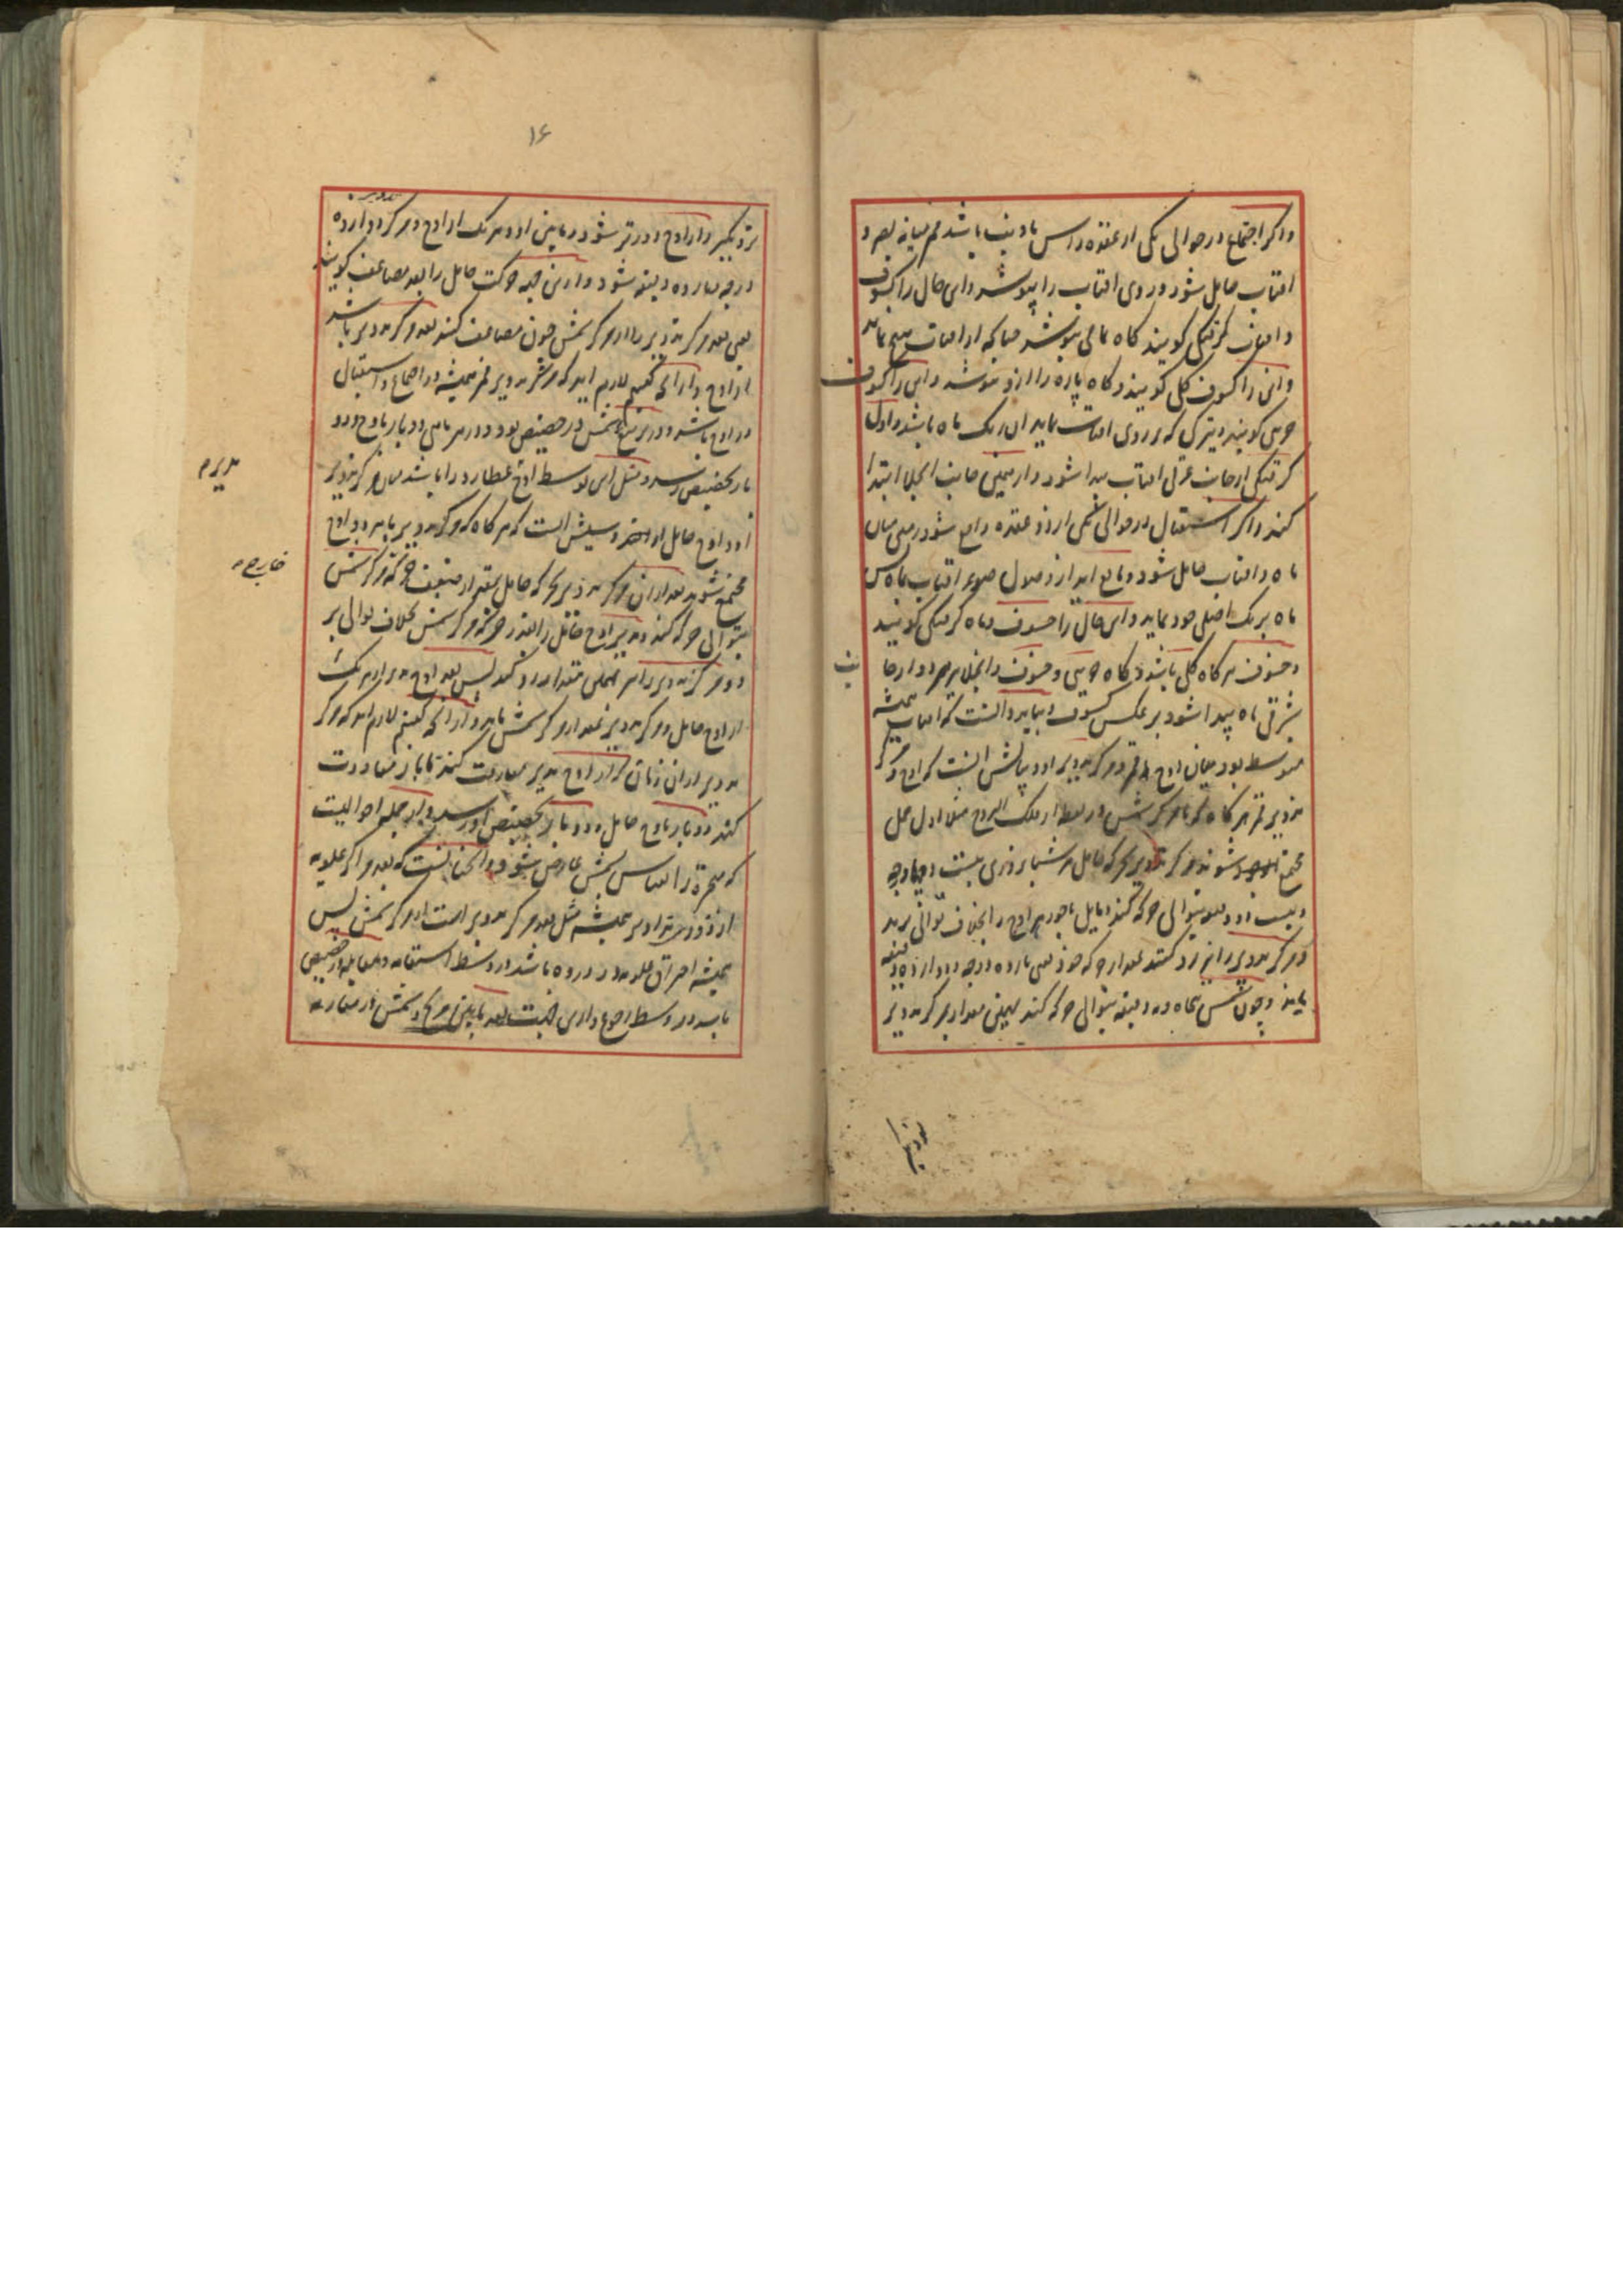 واکر اجتماع در حوالی یکی از عقده راس یا ذنب باشد قمر میانه بصر و
افتاب حایل شود و روی افتاب را بپوشد و این حال را کسوف
و افتاب کرفتکی کویند کاه تمامی بپوشد چنانکه از افتاب هیچ نماند
و انرا کسوف کلی کویند و کاه پاره را ازو بپوشد و این را کسوف
جزئی کویند و تیرکی که بر روی افتاب نماید ان رنک ماه باشد و اول
کرفتکی از جانب غربی افتاب پیدا شود و از همین جانب انجلا ابتدا
کند و اکر استقبال در حوالی یکی از دو عقده واقع شود زمین میان
ماه و افتاب حایل شود و مانع اید از وصول ضوء افتاب بماه پس
ماه برنک اصلی خود نماید و این حال را خسوف و ماه کرفتکی کویند
و خسوف هر کاه کلی باشد و کاه جزئی و خسوف و انجلا هر دو از جا
نب
شرقی ماه پیدا شود بر عکس کسوف و بباید دانست که افتاب همیشه
متوسط بود میان اوج قمر و مرکز تدویر او و بیانش انست که اوج و مرکز
تدویر قمر هر کاه که با مرکز شمس در نقطه از فلک البروج مثلا اول حمل
مجتمع شوند مرکز تدویر بحرکه حامل در شبانروزی بیست و چهار درجه
و بیست و دو دقیقه بتوالی حرکه کند و مایل اوج را بخلاف توالی برد
و مرکز تدویر را نیز رد کند بمقدار حرکه خود یعنی یازده درجه و دوازده دقیقه
بماند و چون شمس پنجاه و نه دقیقه بتوالی حرکه کند بهمین مقدار بمرکز تدویر
نزدیکتر و از اوج دورتر شود و مابین او و هر یک از اوج و مرکز دوازده
تدویر
درجه و یازده دقیقه شود و ازین جهه حرکت حامل را بعد مضاعف کویند
یعنی بعد مرکز تدویر را از مرکز شمس چون مضاعف کنند بعد مرکز تدویر باشد
از اوج و از انچه کفتیم لازم اید که مرکز تدویر قمر همیشه در اجتماع و استقبال
در اوج باشد و در تربیع شمس در حضیض بود و در هر ماهی دو بار باوج و دو
بار بحضیض رسد و مثل این توسط اوج عطارد را باشد میان مرکز تدویر
او و اوج حامل او و سببش انست که هر کاه که مرکز تدویر با هر دو اوج
مجتمع شوند بعد ازان مرکز تدویر بحرکه حامل بمقدار ضعف حرکه مرکز شمس
بتوالی حرکه کند و مدیر اوج حامل را بقدر حرکه مرکز شمس بخلاف توالی برد
و مرکز تدویر را نیز بهمان مقدار رد کند پس بعد اوج مدیر از هر یک
از اوج حامل و مرکز تدویر بمقدار مرکز شمس باشد و از انچه کفتیم لازم اید که مرکز
تدویر از ان زمان که از اوج مدیر مفارقت کند تا باز معاودت
کند دو بار باوج حامل و دو بار بحضیض او رسد و از جمله احوالیست
که متحیره را بقیاس شمس عارض شود و انچنانست که بعد مراکز علویه
از ذروه تداویر همیشه مثل بعد مرکز تدویر است از مرکز شمس پس
همیشه احتراق علویه در ذروه باشد در وسط استقامه و مقابله در حضیض
باشد در وسط رجوع و ازین جهت بعد مابین مریخ و شمس در مقارنه
۱۶
مدیرم
خارج م